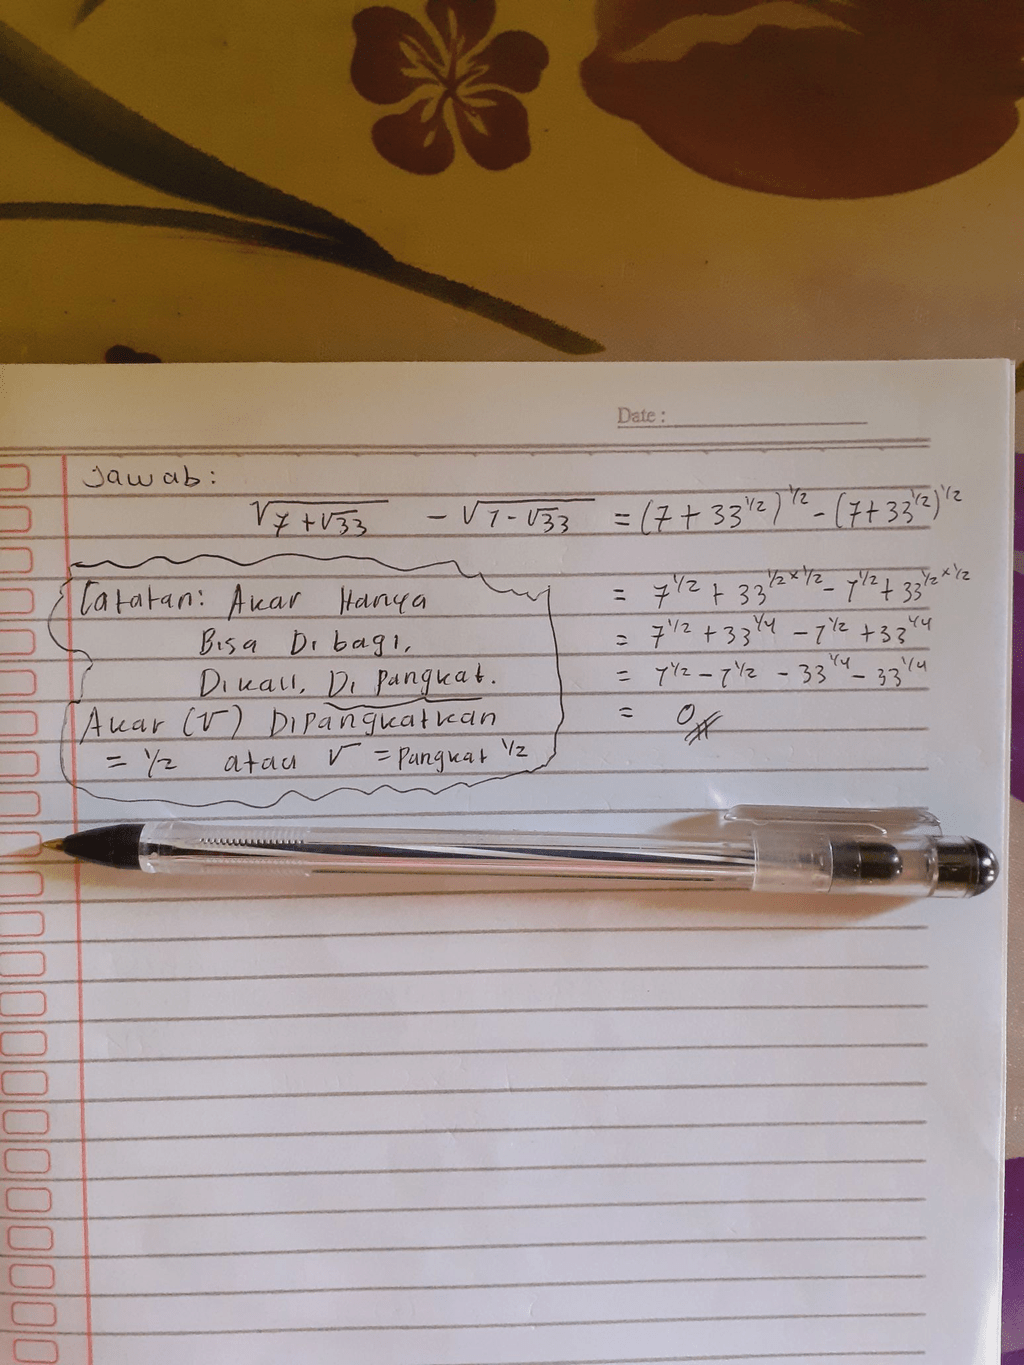 Date :
Jawab:
√7 + √33 − √7 - √33 = (7 + 33^1/2)^1/2 - (7 + 33^1/2)^1/2
Catatan: Akar Hanya
Bisa Di bagi,
Di kali, Di Pangkat.
Akar (√) Dipangkatkan
= 1/2 atau √ = Pangkat 1/2
= 7^1/2 + 33^1/2×1/2 - 7^1/2 + 33^1/2×1/2
= 7^1/2 + 33^1/4 - 7^1/2 + 33^1/4
= 7^1/2 - 7^1/2 - 33^1/4 - 33^1/4
= 0